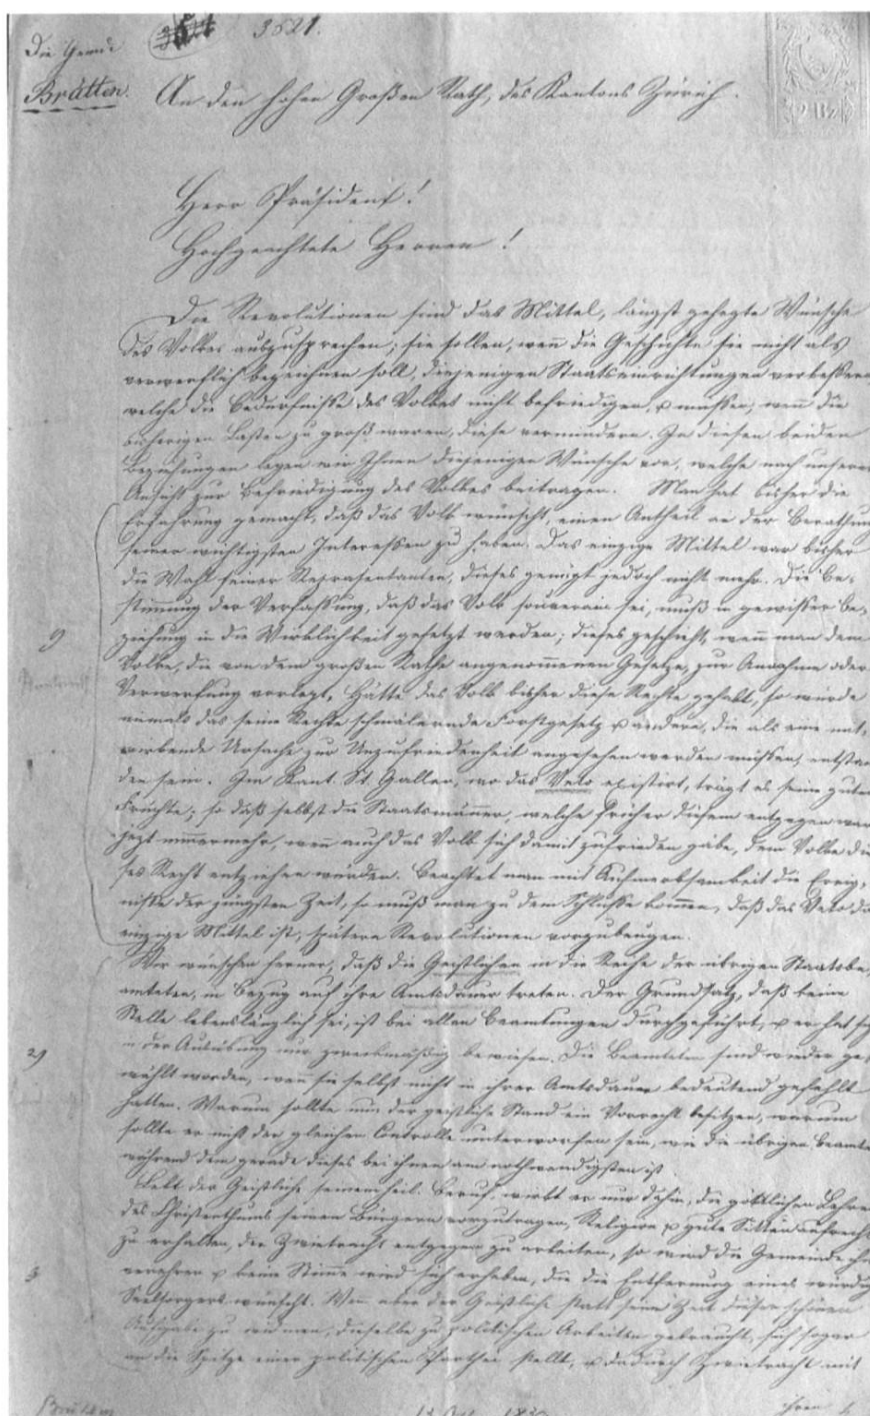 Die Gemde
3521.
Brütten.
An den hohen Großen Rath, des Kantons Zürich.
Herr Präsident!
Hochgeachtete Herren!
Die Revolutionen sind das Mittel, längst gehegte Wünsche
des Volkes auszusprechen; sie sollen, wenn die Geschichte sie nicht als
verwerflich bezeichnen soll, diejenigen Staatseinrichtungen verbessern
welche die Bedürfnisse des Volkes nicht befriedigen, u müssen, wenn die
bisherigen Lasten zu groß waren, diese vermindern. In diesen beiden
Beziehungen legen wir Ihnen diejenigen Wünsche vor, welche nach unserer
Ansicht zur Befriedigung des Volkes beitragen. Man hat bisher die
Erfahrung gemacht, daß das Volk wünscht, einen Antheil an der Berathung
seiner wichtigsten Interessen zu haben. Das einzige Mittel war bisher
die Wahl seiner Repräsentanten, dieses genügt jedoch nicht mehr. Die Be-
stimmung der Verfassung, daß das Volk souverain sei, muß in gewisser Be-
ziehung in die Wirklichkeit gesetzt werden; dieses geschieht, wenn man dem
Volke, die von dem großen Rathe angenommenen Gesetze, zur Annahme oder
Verwerfung vorlegt. Hätte das Volk bisher diese Rechte gehabt, so würde
niemals das seine Rechte schmälernde Forstgesetz u andere, die als eine mit-
wirkende Ursache zur Unzufriedenheit angesehen werden müssen, entstan
den sein. Im Kant. St. Gallen, wo das Veto existirt, trägt es seine guten
Früchte; so daß selbst die Staatsmänner, welche früher diesem entgegen war
jezt nimmermehr, wenn auch das Volk sich damit zufrieden gäbe, dem Volke die
ses Recht entziehen würden. Beachtet man mit Aufmerksamkeit die Ereig-
nisse der jüngsten Zeit, so muß man zu dem Schlusse kommen, daß das Veto da
einzige Mittel ist, spätern Revolutionen vorzubeugen.
Wir wünschen ferner, daß die Geistlichen in die Reihe der übrigen Staatsbe-
amteten, in Bezug auf ihre Amtsdauer treten. Der Grundsatz, daß keine
Stelle lebenslänglich sei, ist bei allen Beamtungen durchgeführt, u er hat sich
in der Ausübung nur zweckmäßig bewiesen. Die Beamteten sind wieder ge-
wählt worden, wenn sie selbst nicht in ihrer Amtsdauer bedeutend gefehlt
hatten. Warum sollte nun der geistliche Stand ein Vorrecht besitzen, warum
sollte er nicht der gleichen Controlle unterworfen sein, wie die übrigen Beamten
während dem gerade dieses bei ihnen am nothwendigsten ist.
Lebt der Geistliche seinem heil. Beruf, wirkt er nur dahin, die göttlichen Lehren
des Christenthums seinen Bürgern vorzutragen, Religion u gute Sitten aufrecht
zu erhalten, der Zwietracht entgegen zu arbeiten, so wird die Gemeinde ihn
verehren u keine Stimme wird sich erheben, die die Entfernung eines würdig
Seelsorgers wünscht. Wenn aber der Geistliche statt seine Zeit dieser schönen
Aufgabe zu widmen, dieselbe zu politischen Arbeiten gebraucht, sich sogar
an die Spitze einer politischen Parthei stellt, u dadurch Zwietracht mit